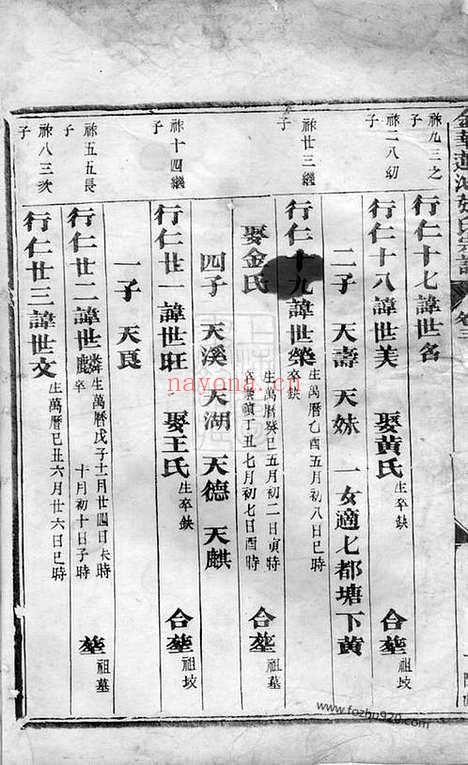 祢九三之
子
行仁十七諱世名
祢二八幼
子
行仁十八諱世美 娶黄氏 生卒缺 合塟 祖坟
二子 天壽 天妹 一女適七都塘下黄
祢廿三繼
子
行仁十九諱世樂 生萬曆乙酉五月初八日巳時
卒缺
娶金氏 生萬曆癸巳五月初二日寅時
丁丑七月初七日酉時 合塟 祖坟
四子 天溪 天湖 天德 天麒
祢十四繼
子
行仁廿一諱世旺 娶王氏 生卒缺 合塟 祖坟
一子 天良
祢五五長
子
行仁廿二諱世麟 生萬曆戊子十二月廿四日未時
卒 十月初十日子時 塟 祖墓
祢八三次
子
行仁廿三諱世文 生萬曆己丑六月廿六日巳時
nayona.com
www.fozhu920.com